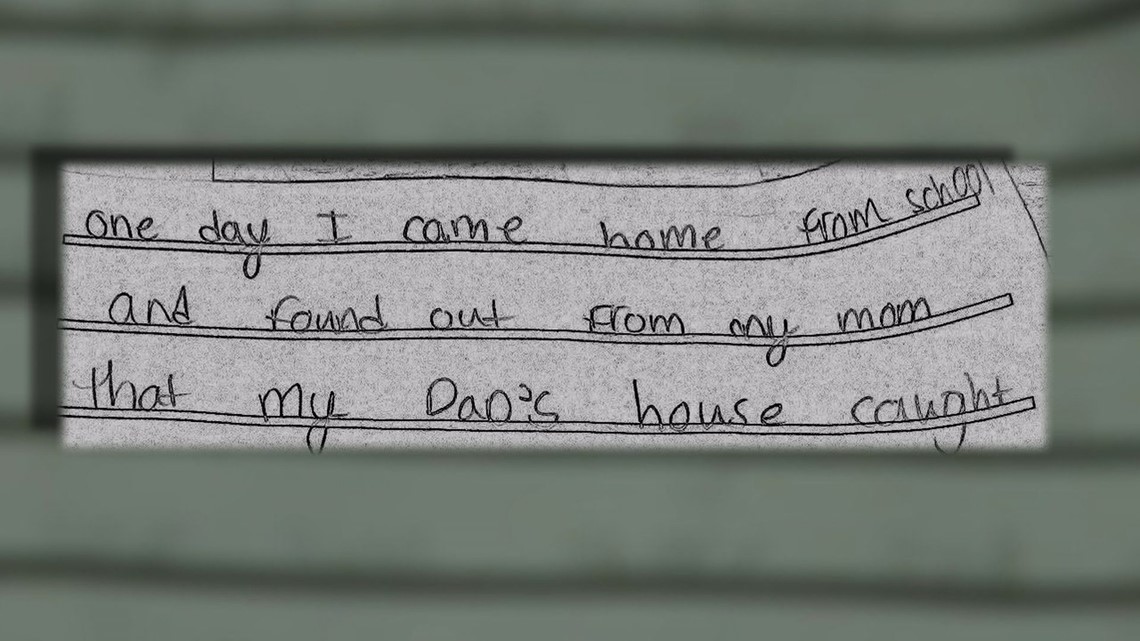 one day I came home from school
and found out from my mom
that my Dad's house caught